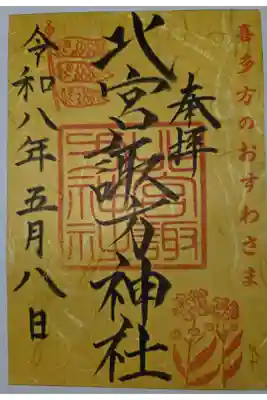 喜多方のおすわさま
奉拝
北宮諏方神社
令和八年五月八日